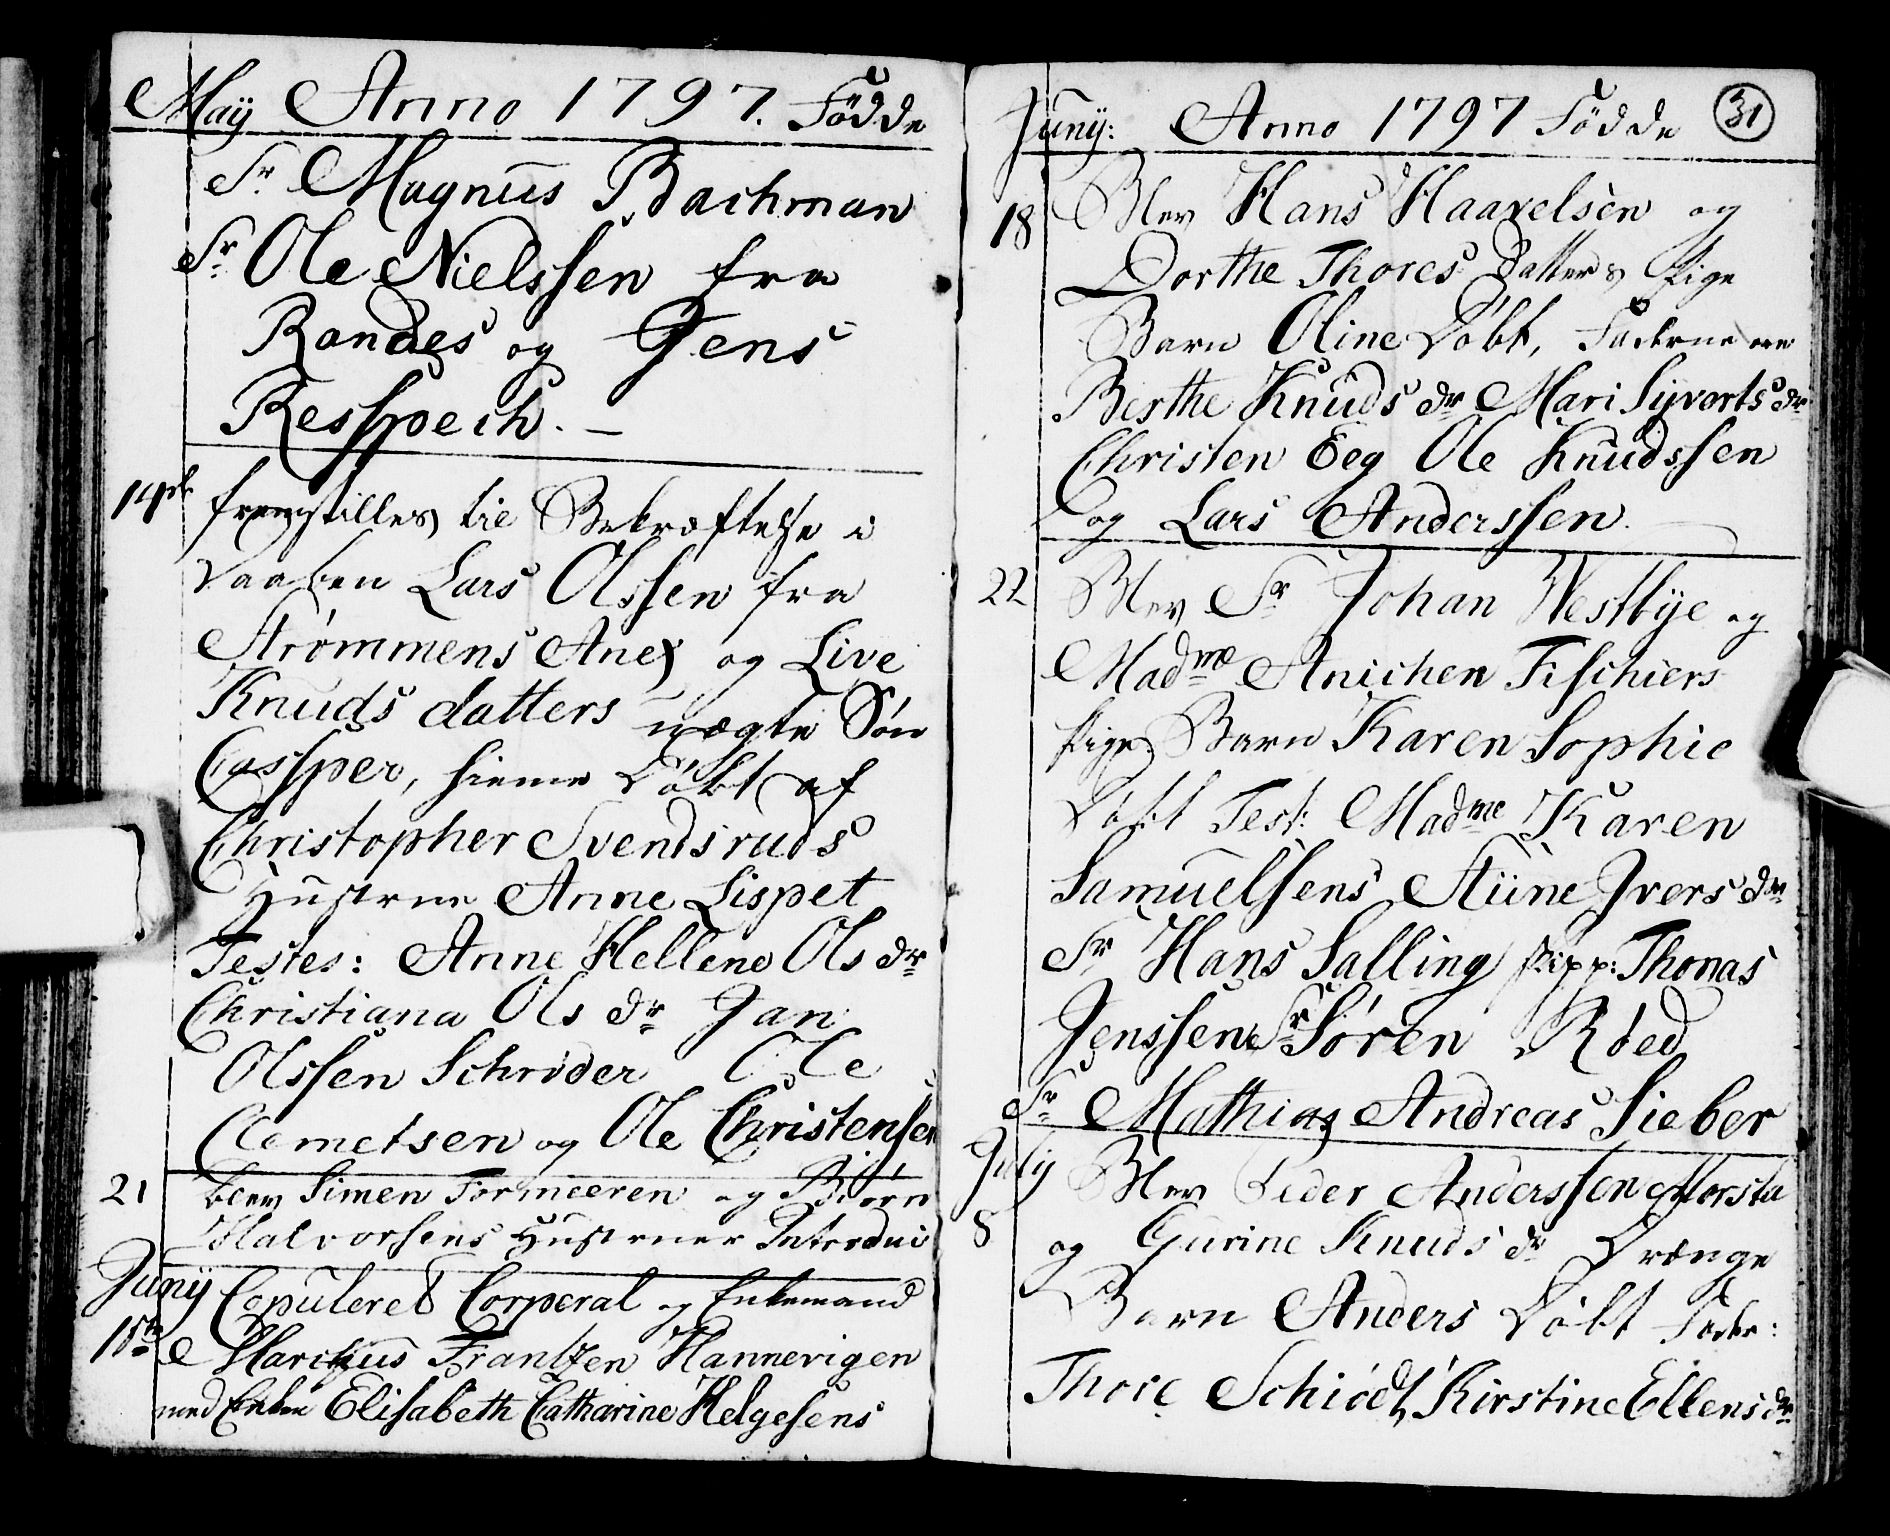 Maÿ Anno 1797. Fødde
Sr. Magnus Bachman
Sr. Ole Nielssen fra
Randes og Jens
Resspech. —
14de fremstilles til Bekræftelse i
Daaben Lars Olssen fra
Strømmens Anex og Live
Knuds datters uægte Søn
Cassper, hieme Døbt af
Christopher Svendsruds
Hustrue Anne Lispet
Testes: Anne Hellene Ols dr.
Christiana Ols dr. Jan
Olssen Schrøder Ole
Clemetsen og Ole Christensen
21 blev Simen Formeeren og Biørn
Halvorsens Hustruer Introdui
Junÿ Copuleret Corperal og Enkemand
15de Marchus Frantzen Hannevigen
med Enken Elisabeth Catharine Helgesens
Junÿ: Anno 1797 Fødde 31
18 Blev Hans Haavelsen og
Dorthe Thores Datters Pige
Barn Oline Døbt, Faderne ere
Berthe Knuds dr. Mari Syverts dr.
Christen Eeg Ole Knudssen
og Lars Anderssen.
22 Blev Sr. Johan Westbÿe og
Madme Anichen Fischiers
Pige Barn Karen Sophie
Døbt Test: Madme Karen
Samuelsens Stine Ivers dr.
Sr. Hans Salling Skipp: Thomas
Jenssen Sr. Søren Røed
Sr. Mathias Andreas Sieber
Julÿ Blev Peder Anderssen Morsta
8 og Gurine Knuds dr. Drænge
Barn Anders Døbt Fader:
Thore Schiødt, Kirstine Ellens dr.